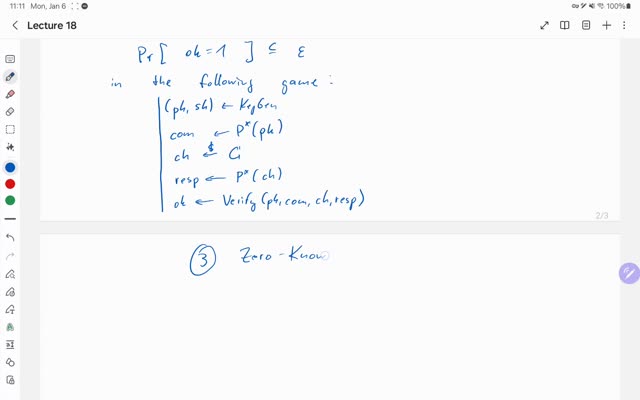 11:11 Mon, Jan 6
100%
Lecture 18
Pr [ ok = 1 ] ≤ ε
in the following game :
(pk, sk) ← KeyGen
com ← P*(pk)
ch ←$ C
resp ← P*(ch)
ok ← Verify (pk, com, ch, resp)
2/3
③ Zero - Know